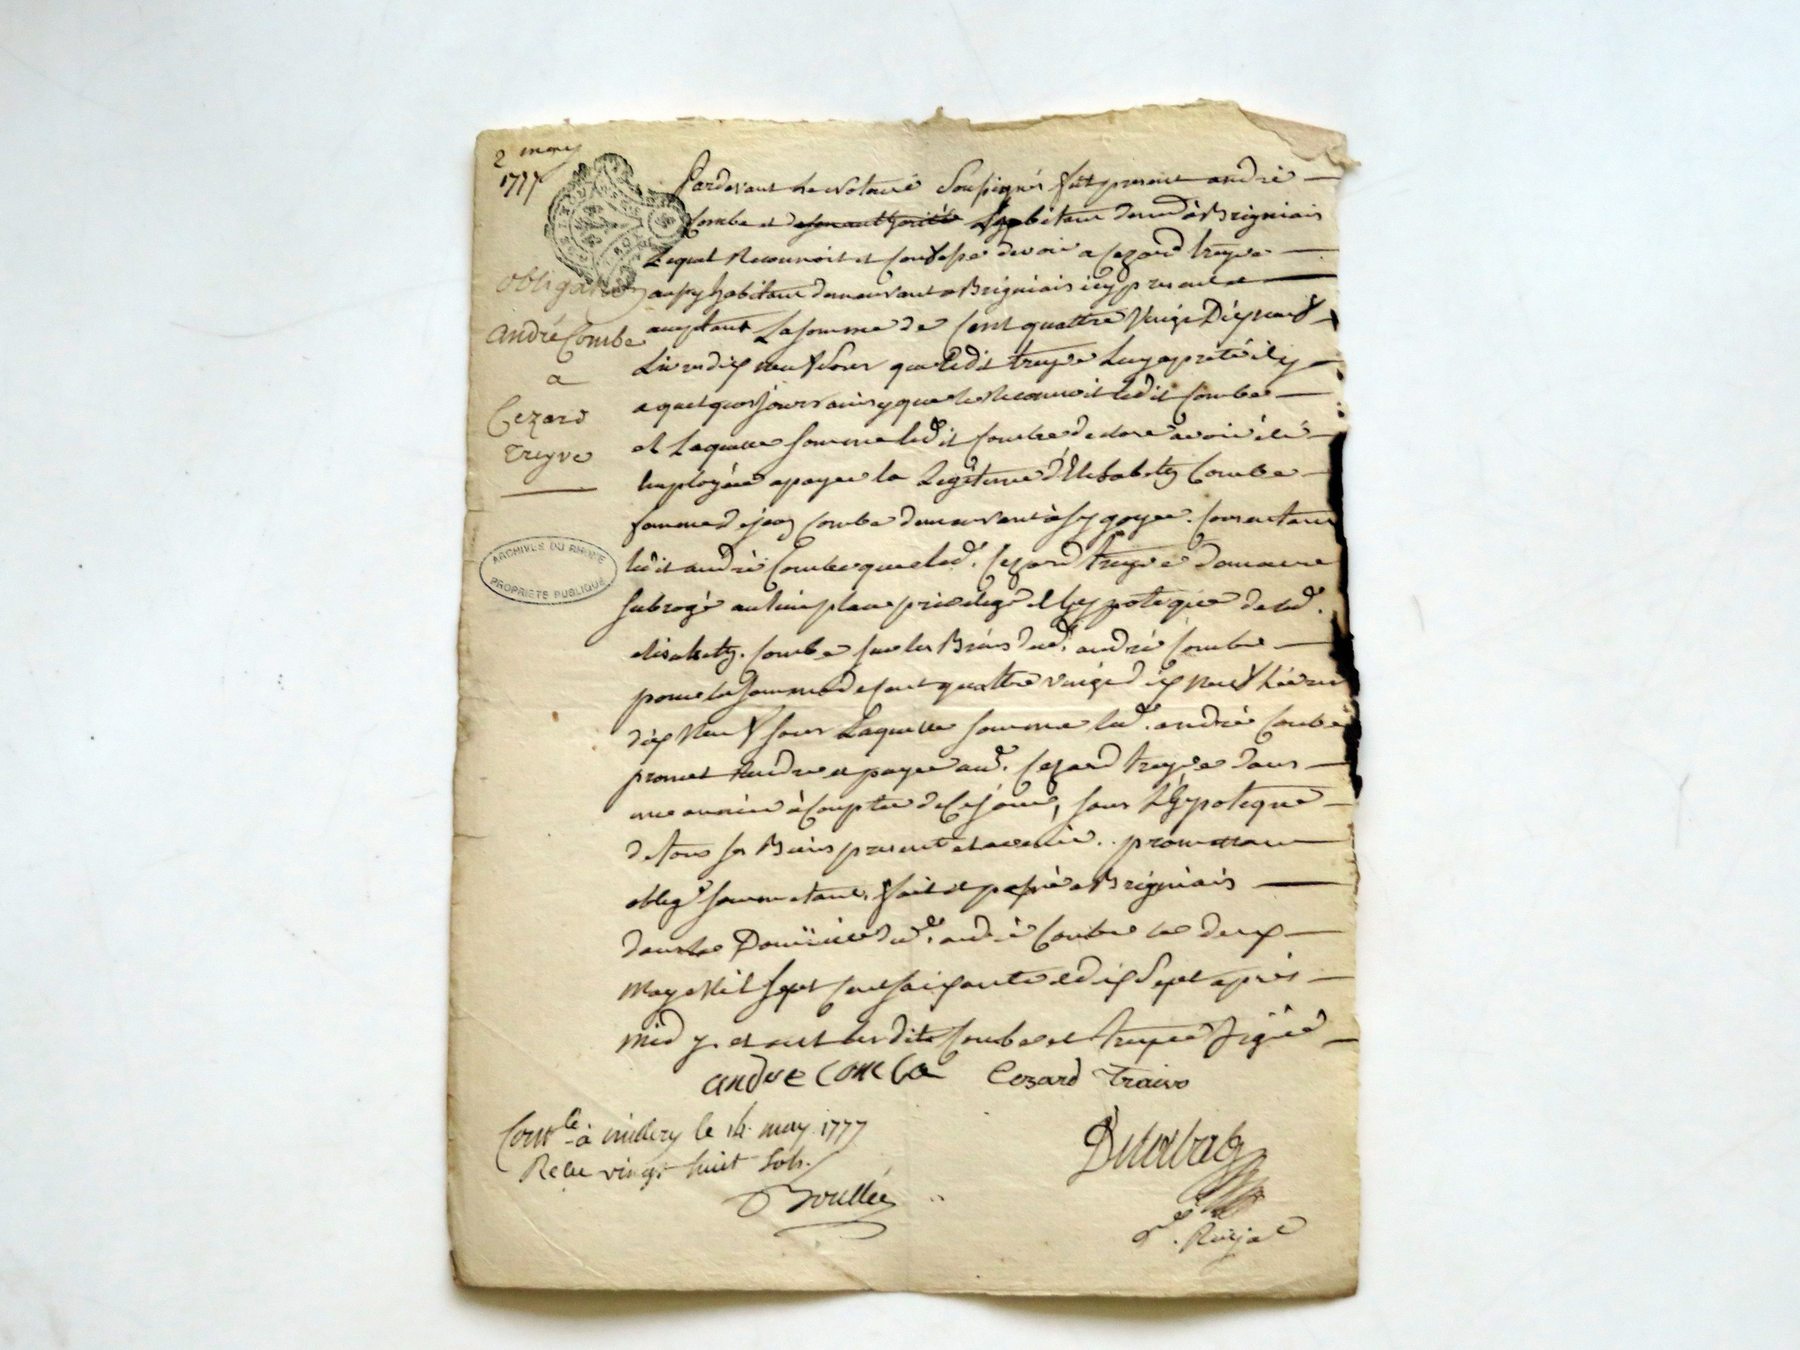 2 may
1777
Obligation
André Combe
a
Cezard
Treyve
ARCHIVES DU RHONE
PROPRIETE PUBLIQUE
Pardevant Le Notaire Soussigné fut present andré
Combe et de son authorité habitant dem.t à Brigniais
Lequel Reconnoit et Confesse devoir a Cezard treyve
aussy habitant demeurant a Brigniais icy present et
aceptant La somme de Cent quattre Vingt Dix neuf
Livres dix neuf sous que ledit treyve Luy a preté il y
a quelques jours ainsy que le Reconnoit ledit Combe
et Laquelle somme ledit Combe declare avoir été
Employée a payer la Legitime d'Elisabeth Combe
femme de jean Combe demeurant à consentant
ledit andré Combe que led. Cezard treyve demeure
subrogé au lieu place privilege et hypoteque de lad.
elisabeth Combe sur les Biens dud. andré Combe
pour la somme de cent quattre vingt dix neuf Livres
dix Neuf sous Laquelle somme led. andré Combe
promet Rendre et payer aud. Cezard treyve dans
une année à Compter de Ce jour, sous L'hypoteque
de tous ses Biens present et avenir.. promettant
oblig.t soumetant, fait et passé a Brigniais
dans le Domicile dud. andré Combe le deux
May Mil sept cent soixante et dix sept après
midy. et ont lesdits Combe et treyve signé
andre combe Cezard Traive
Cont.le à millery le 14 may 1777
Reçu vingt huit sols.
Boullée